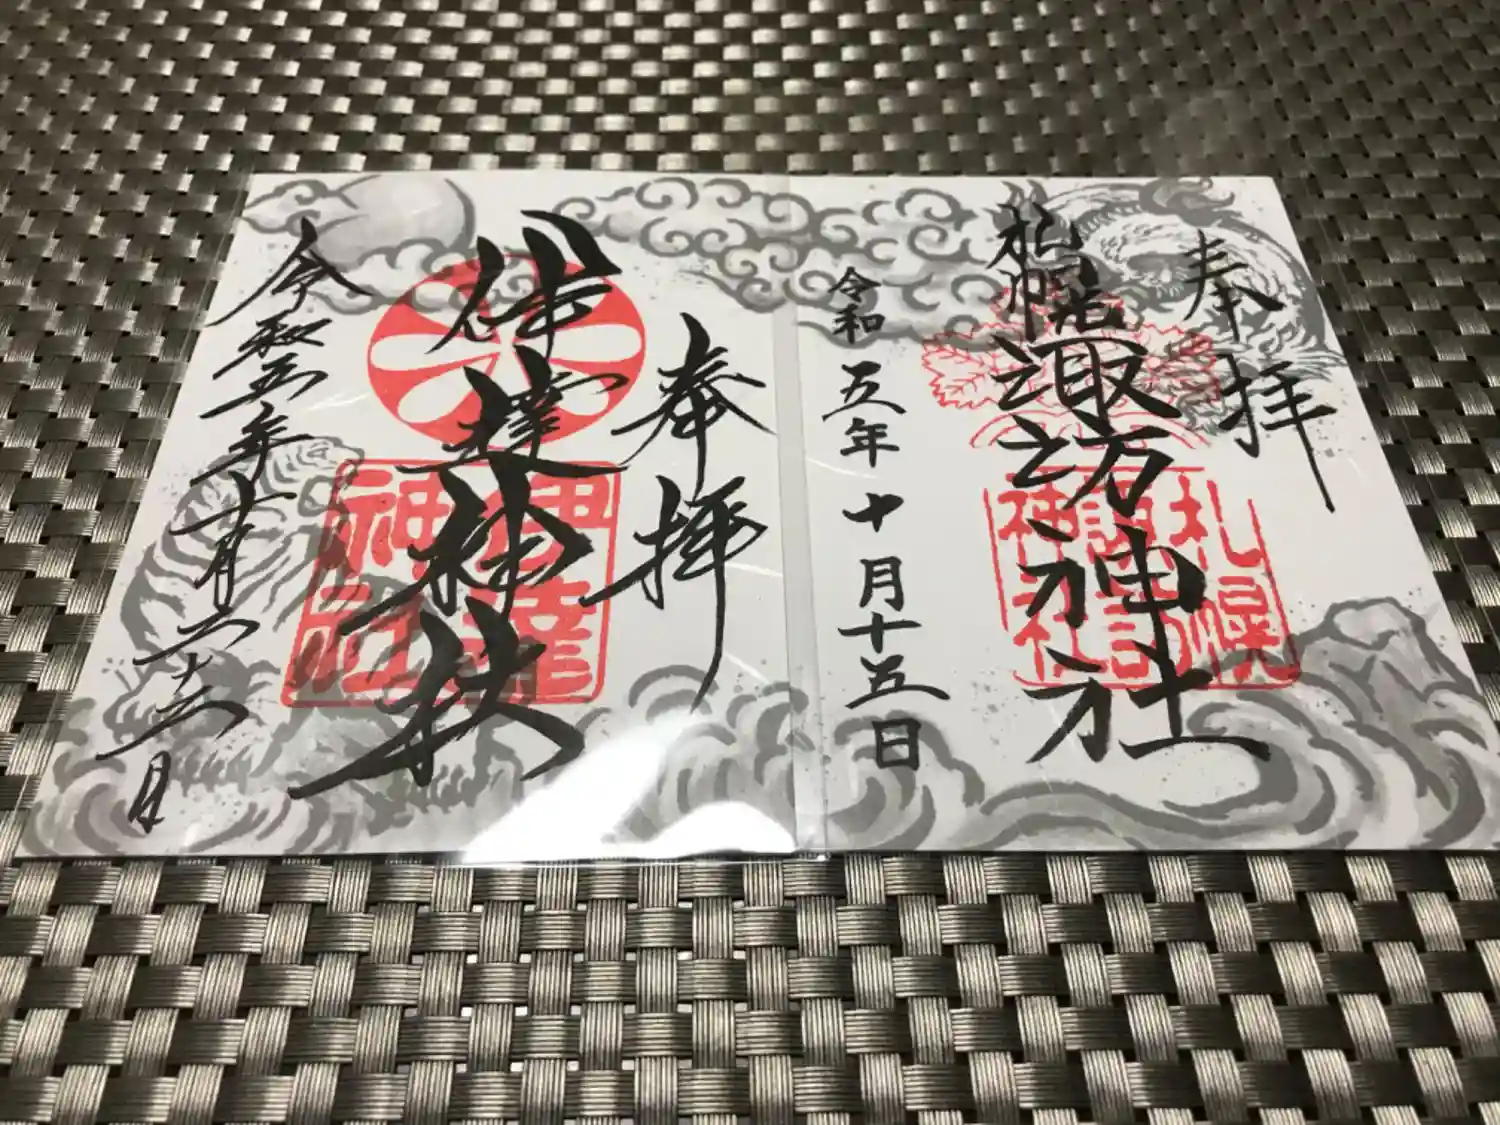 奉拝
札幌
諏訪神社
札幌
諏訪
神社
令和五年十月十五日
奉拝
伊達神社
伊達
神社
令和五年十月二十二日